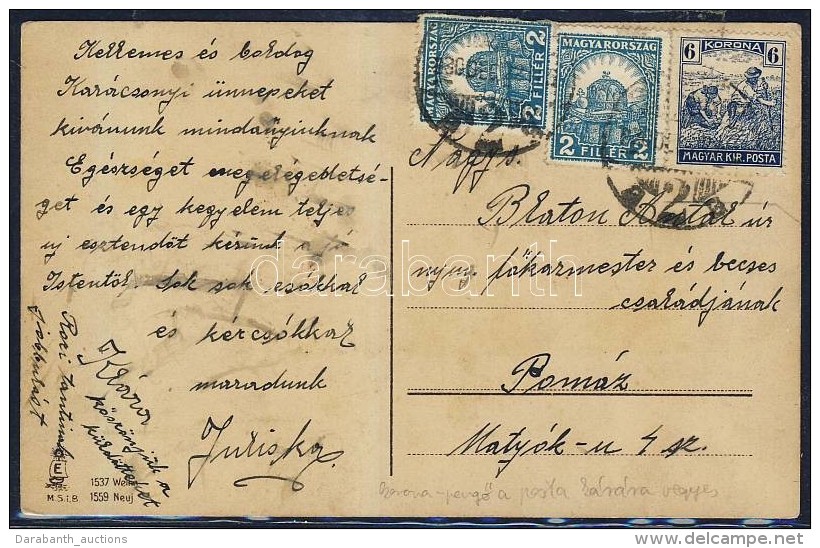 Kellemes és boldog
Karácsonyi ünnepeket
kívánunk mindanyiuknak
Egészséget megelégedetsé-
get és egy kegyelem teljes
uj esztendöt kérünk a jó
Istentöl. Sok sok csókkal
és kézcsókkal
maradunk
Juliska
Klára
köszönjük a
küldöttet
Rozi tantinak
jobbulást
E
M.S.i.B.
1537 Weih
1559 Neuj
MAGYARORSZÁG
2 FILLÉR 2
MAGYARORSZÁG
2 FILLÉR 2
6 KORONA 6
MAGYAR KIR. POSTA
Nagys.
Blaton Antal úr
nyug. főkarmester és becses
családjának
Pomáz
Matyók-u 4 sz.
korona-pengő a posta zárására vegyes
darabanth
Darabanth_auctions
delcampe.net